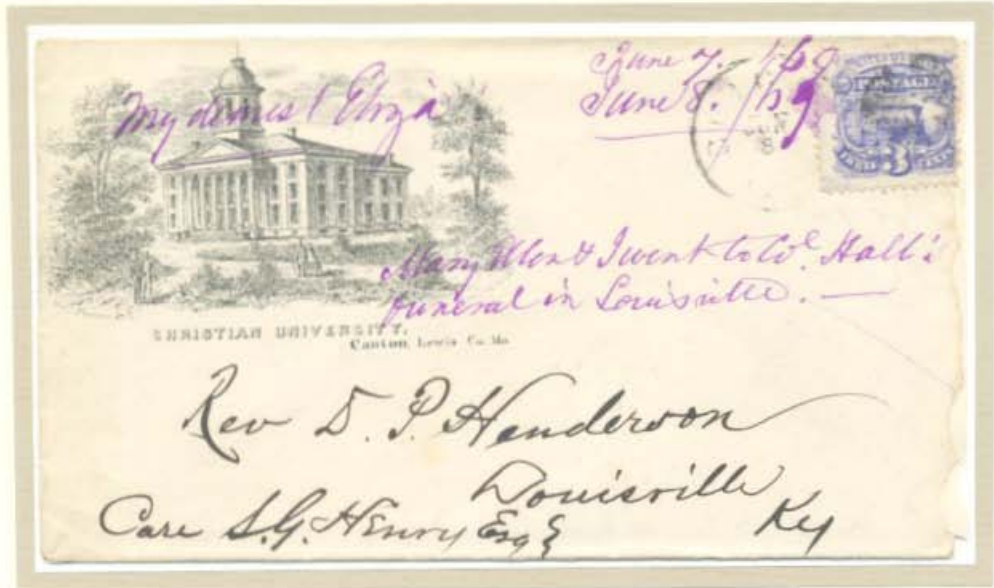 My dearest Eliza
June 7. /69
June 8. /69
JUN
8
3
Mary Ellen & I went to Col. Hall's
funeral in Louisville. —
CHRISTIAN UNIVERSITY,
Canton, Lewis Co. Mo.
Rev D. P. Henderson
Louisville
Care S. G. Henry Esq
Ky